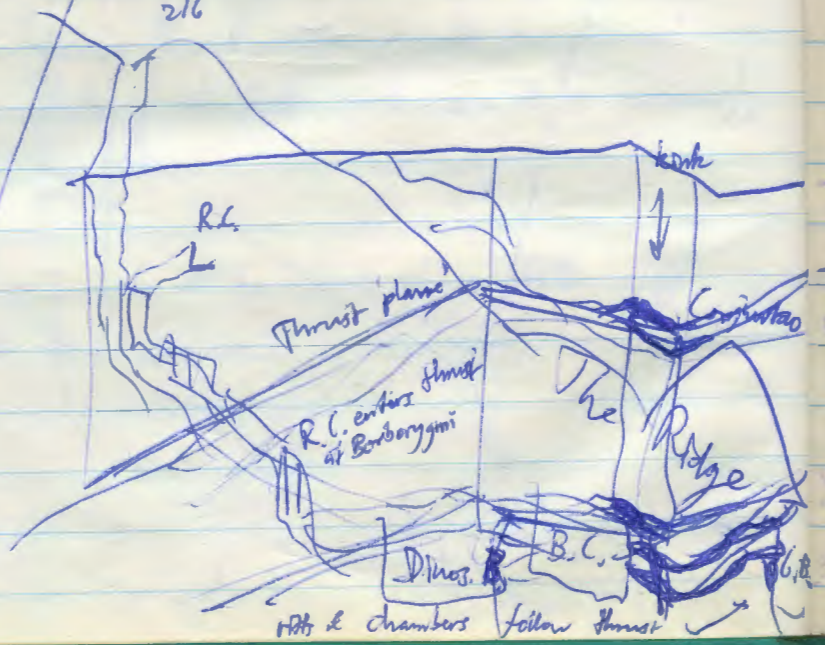 216
kink
R.C.
Thrust 'plane'
R.C. enters thrust
at Borborygmi
The
Ridge
Dinos.
B.C.
& chambers follow thrust